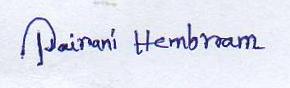 Dainani Hembram